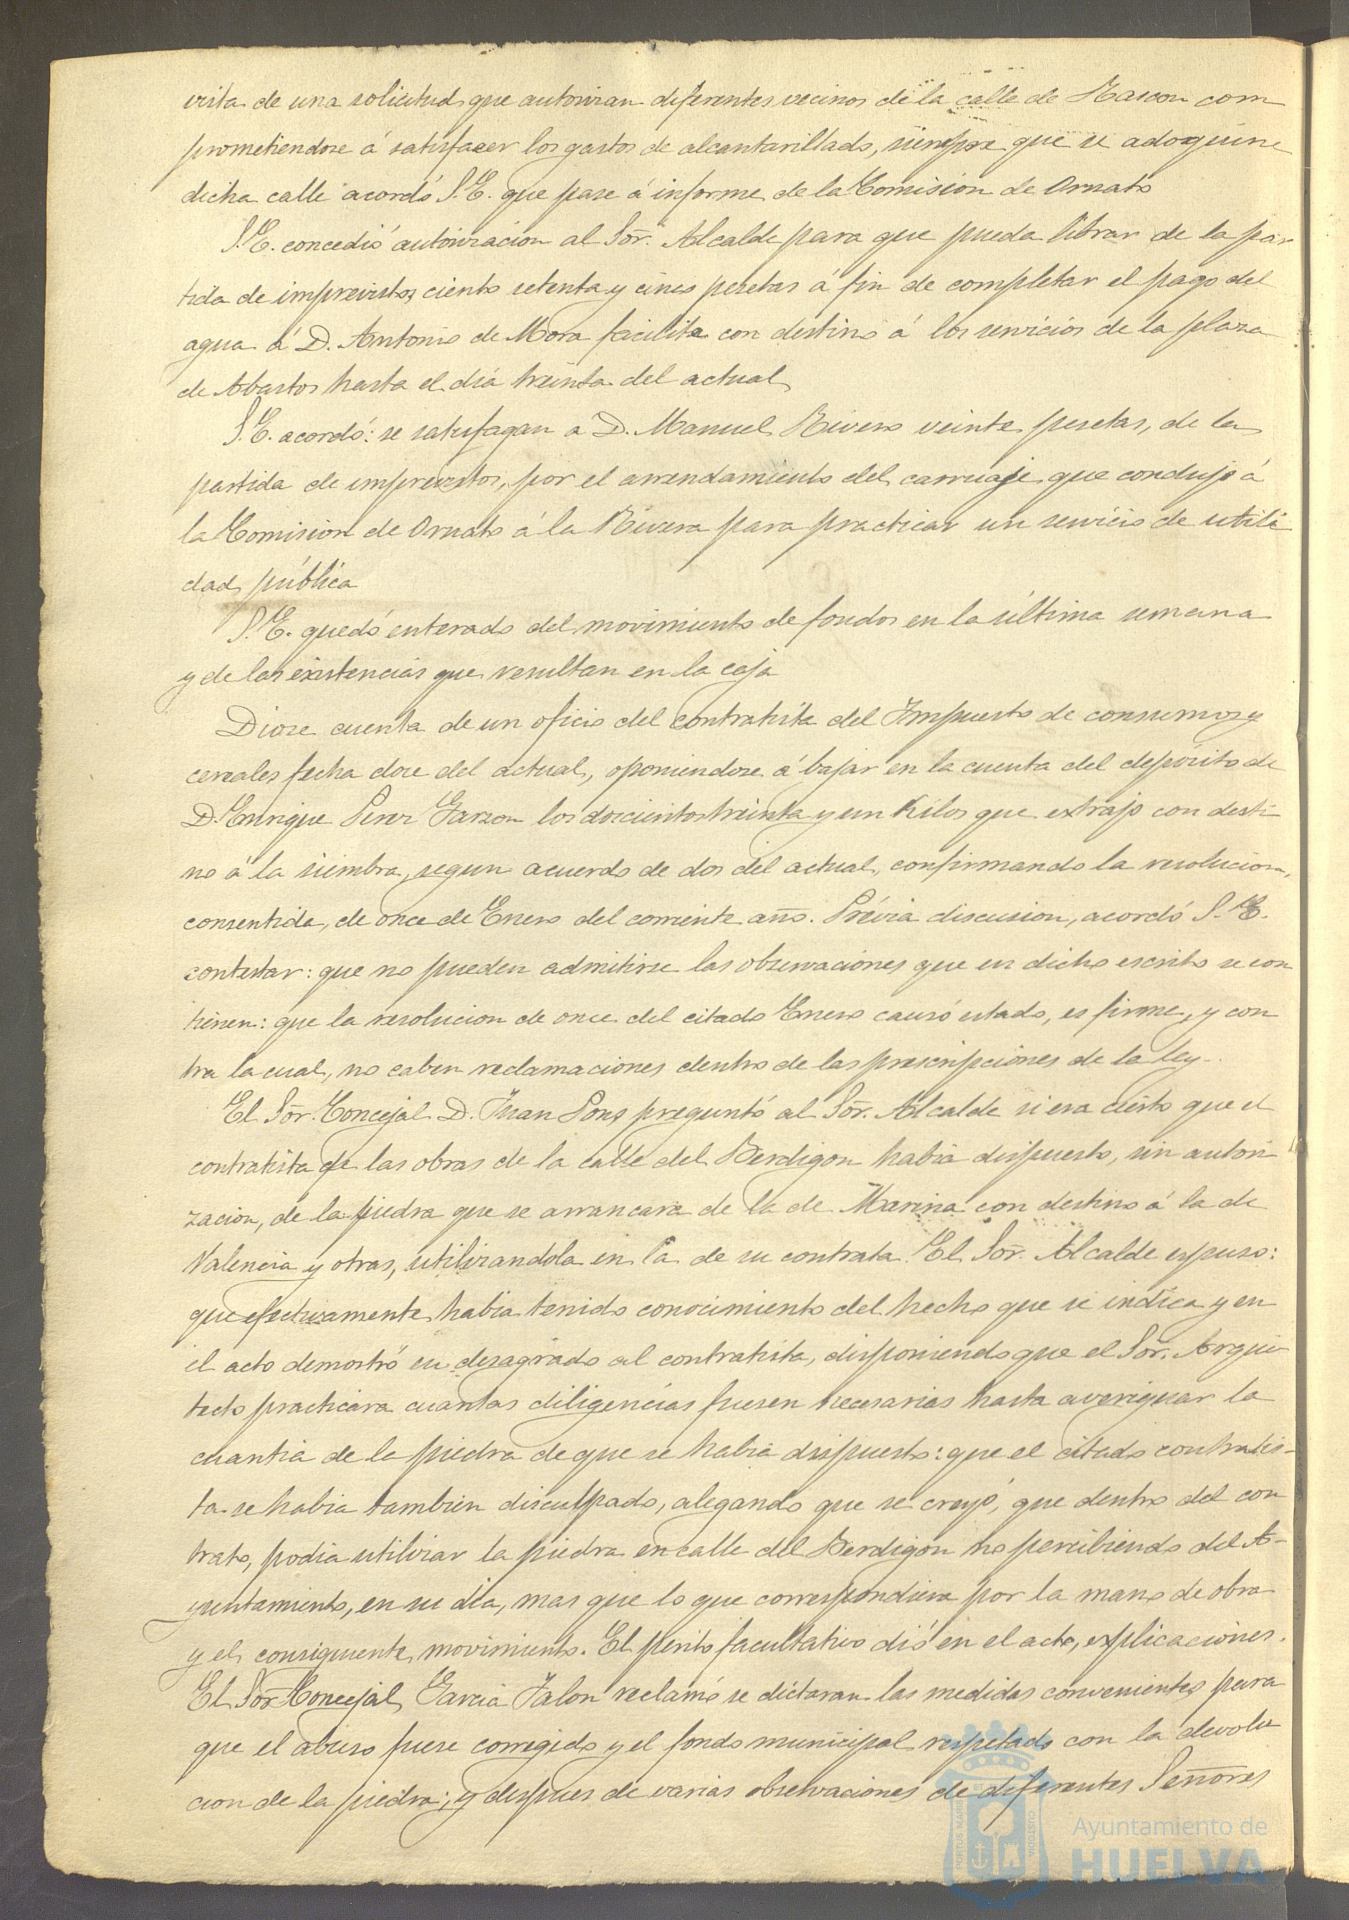 vista de una solicitud que autorizan diferentes vecinos de la calle de Rascon com
prometiendose á satisfacer los gastos de alcantarillado, siempre que se adoquine
dicha calle acordó S.E. que pase á informe de la Comision de Ornato
S.E. concedió autorizacion al Sor. Alcalde para que pueda librar de la par
tida de imprevistos ciento setenta y cinco pesetas á fin de completar el pago del
agua á D. Antonio de Mora facilita con destino á los servicios de la plaza
de Abastos hasta el dia treinta del actual
S.E. acordó: se satisfagan a D. Manuel Rivero veinte pesetas, de la
partida de imprevistos, por el arrendamiento del carruaje que condujo á
la Comision de Ornato á la Rivera para practicar un servicio de utili
dad pública
S.E. quedó enterado del movimiento de fondos en la última semana
y de las existencias que resultan en la caja
Diose cuenta de un oficio del contratista del Impuesto de consumos y
cereales fecha doce del actual, oponiendose á bajar en la cuenta del depósito de
D. Enrique Perez Garzon los doscientos treinta y un Kilos que extrajo con desti
no á la siembra, segun acuerdo de dos del actual, confirmando la resolucion,
consentida, de once de Enero del corriente año. Prévia discusion, acordó S.E.
contestar: que no pueden admitirse las observaciones que en dicho escrito se con
tienen: que la resolucion de once del citado Enero causó estado, es firme, y con
tra la cual, no caben reclamaciones dentro de las prescripciones de la ley.
El Sor. Concejal D. Juan Pons preguntó al Sor. Alcalde si era cierto que el
contratista de las obras de la calle del Berdigon habia dispuesto, sin autori
zacion, de la piedra que se arrancara de la de Marina con destino á la de
Valencia y otras, utilizandola en la de su contrata. El Sor. Alcalde espuso:
que efectivamente habia tenido conocimiento del hecho que se indica y en
el acto demostró su desagrado al contratista, disponiendo que el Sor. Arqui
tecto practicara cuantas diligencias fuesen necesarias hasta averiguar la
cuantia de la piedra de que se habia dispuesto: que el citado contratis-
ta se habia tambien disculpado, alegando que se creyó, que dentro del con
trato, podia utilizar la piedra en calle del Berdigon no percibiendo del A-
yuntamiento, en su dia, mas que lo que correspondiera por la mano de obra
y el consiguiente movimiento. El perito facultativo dió en el acto, explicaciones.
El Sor. Concejal Garcia Jalon reclamó se dictaran las medidas convenientes para
que el abuso fuese corregido y el fondo municipal respetado con la devolu
cion de la piedra; y despues de varias observaciones de diferentes Señores
Ayuntamiento de
HUELVA